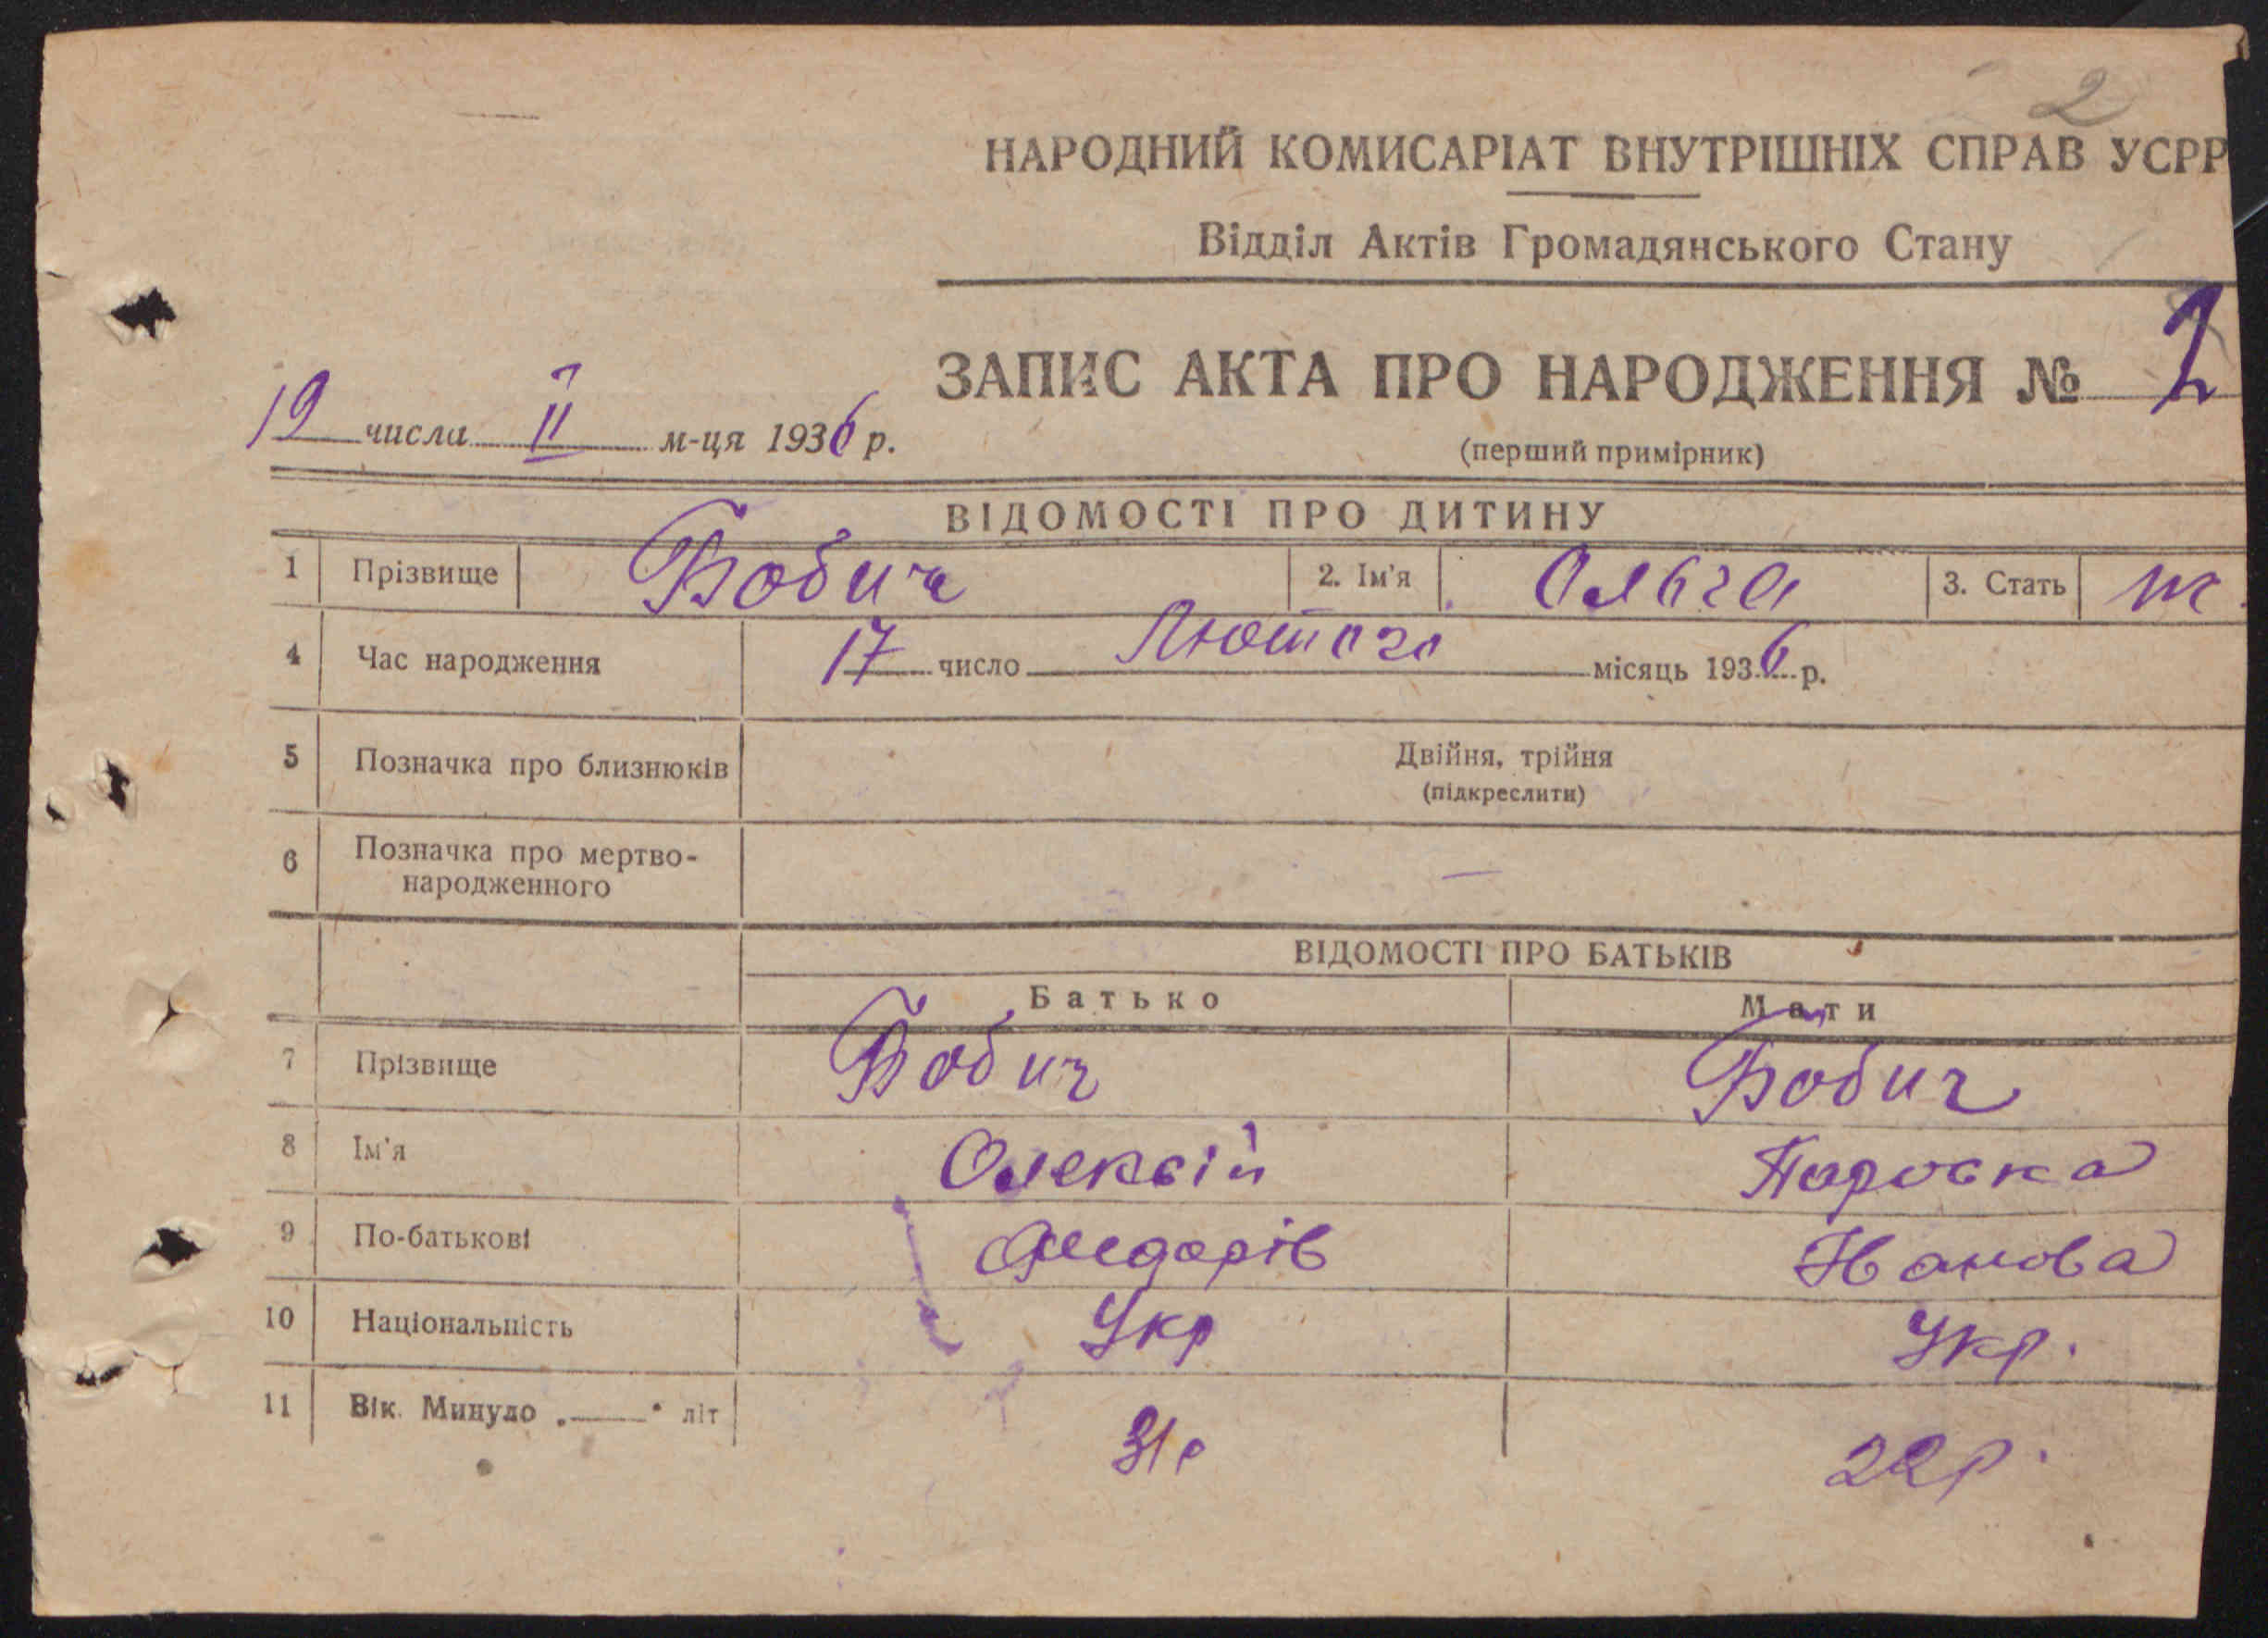 2
НАРОДНИЙ КОМИСАРІАТ ВНУТРІШНІХ СПРАВ УСРР
Відділ Актів Громадянського Стану
ЗАПИС АКТА ПРО НАРОДЖЕННЯ № 2
19 числа II м-ця 1936 р.
(перший примірник)
ВІДОМОСТІ ПРО ДИТИНУ
1 Прізвище Бобич 2. Ім'я Ольга 3. Стать ж.
4 Час народження 17 число Лютого місяць 1936 р.
5 Позначка про близнюків Двійня, трійня
(підкреслити)
6 Позначка про мертво-
народженного —
ВІДОМОСТІ ПРО БАТЬКІВ
Батько Мати
7 Прізвище Бобич Бобич
8 Ім'я Олексій Пороска
9 По-батькові Федорів Іванова
10 Національність Укр Укр.
11 Вік. Минуло „——“ літ 31р 22р.